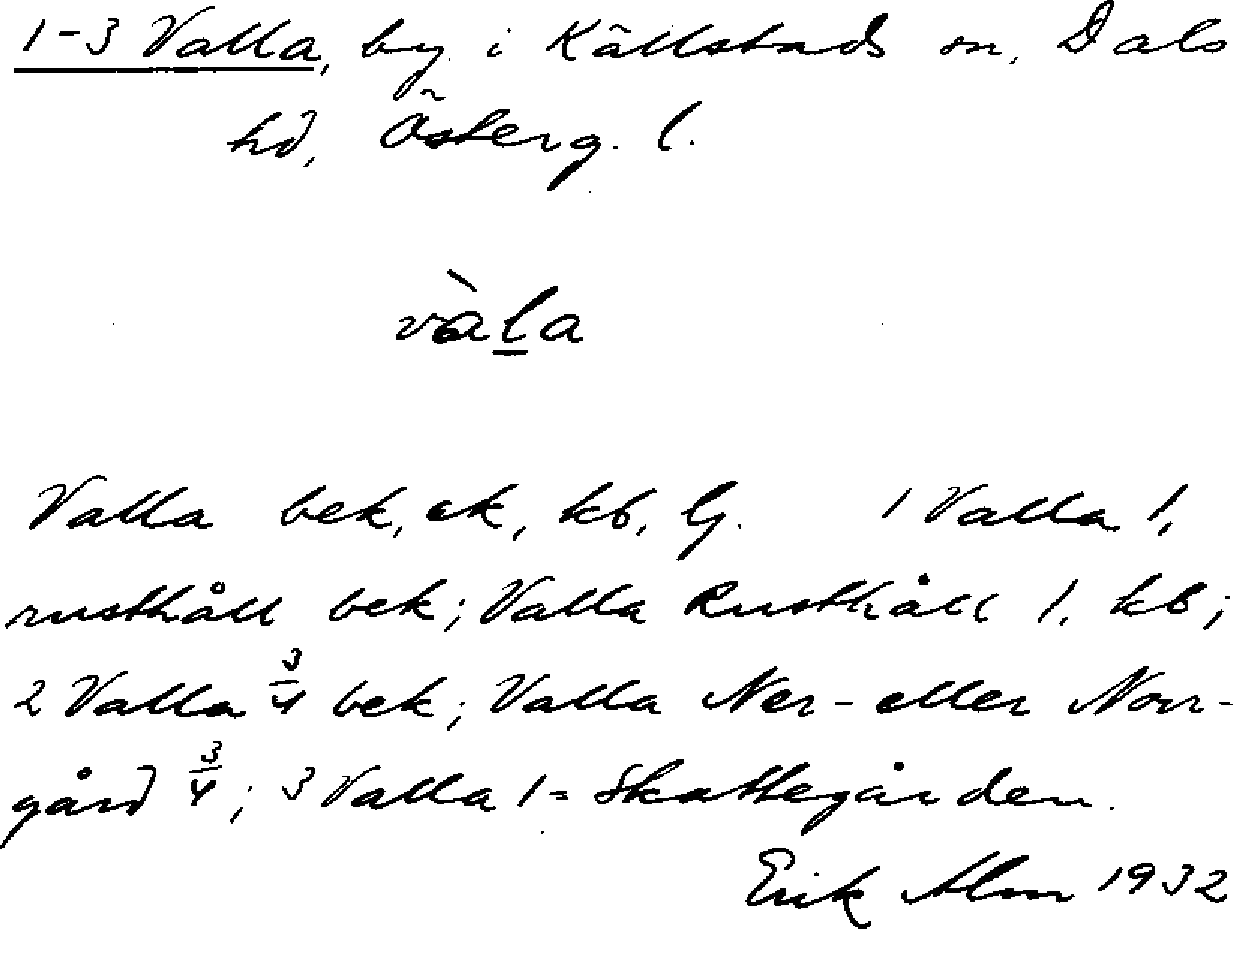 1-3 Valla, by i Källstads sn, Dals
hd, Österg. l.
vàl̲a
Valla bek, ek, kb, G. 1 Valla 1,
rusthåll bek; Valla Rusthåll 1, kb;
2 Valla 3/4 bek; Valla Ner- eller Norr-
gård 3/4; 3 Valla 1 = Skattegården.
Erik Alm 1932